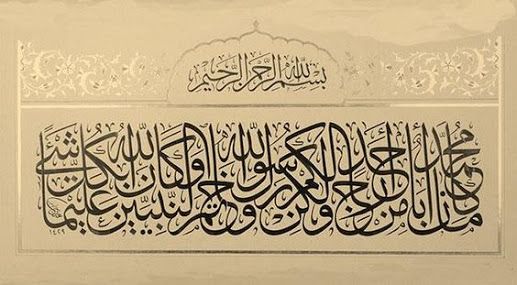 بسم الله الرحمن الرحيم
ما كان محمد أبا أحد من رجالكم ولكن رسول الله وخاتم النبيين وكان الله بكل شيء عليما
١٤٢٩